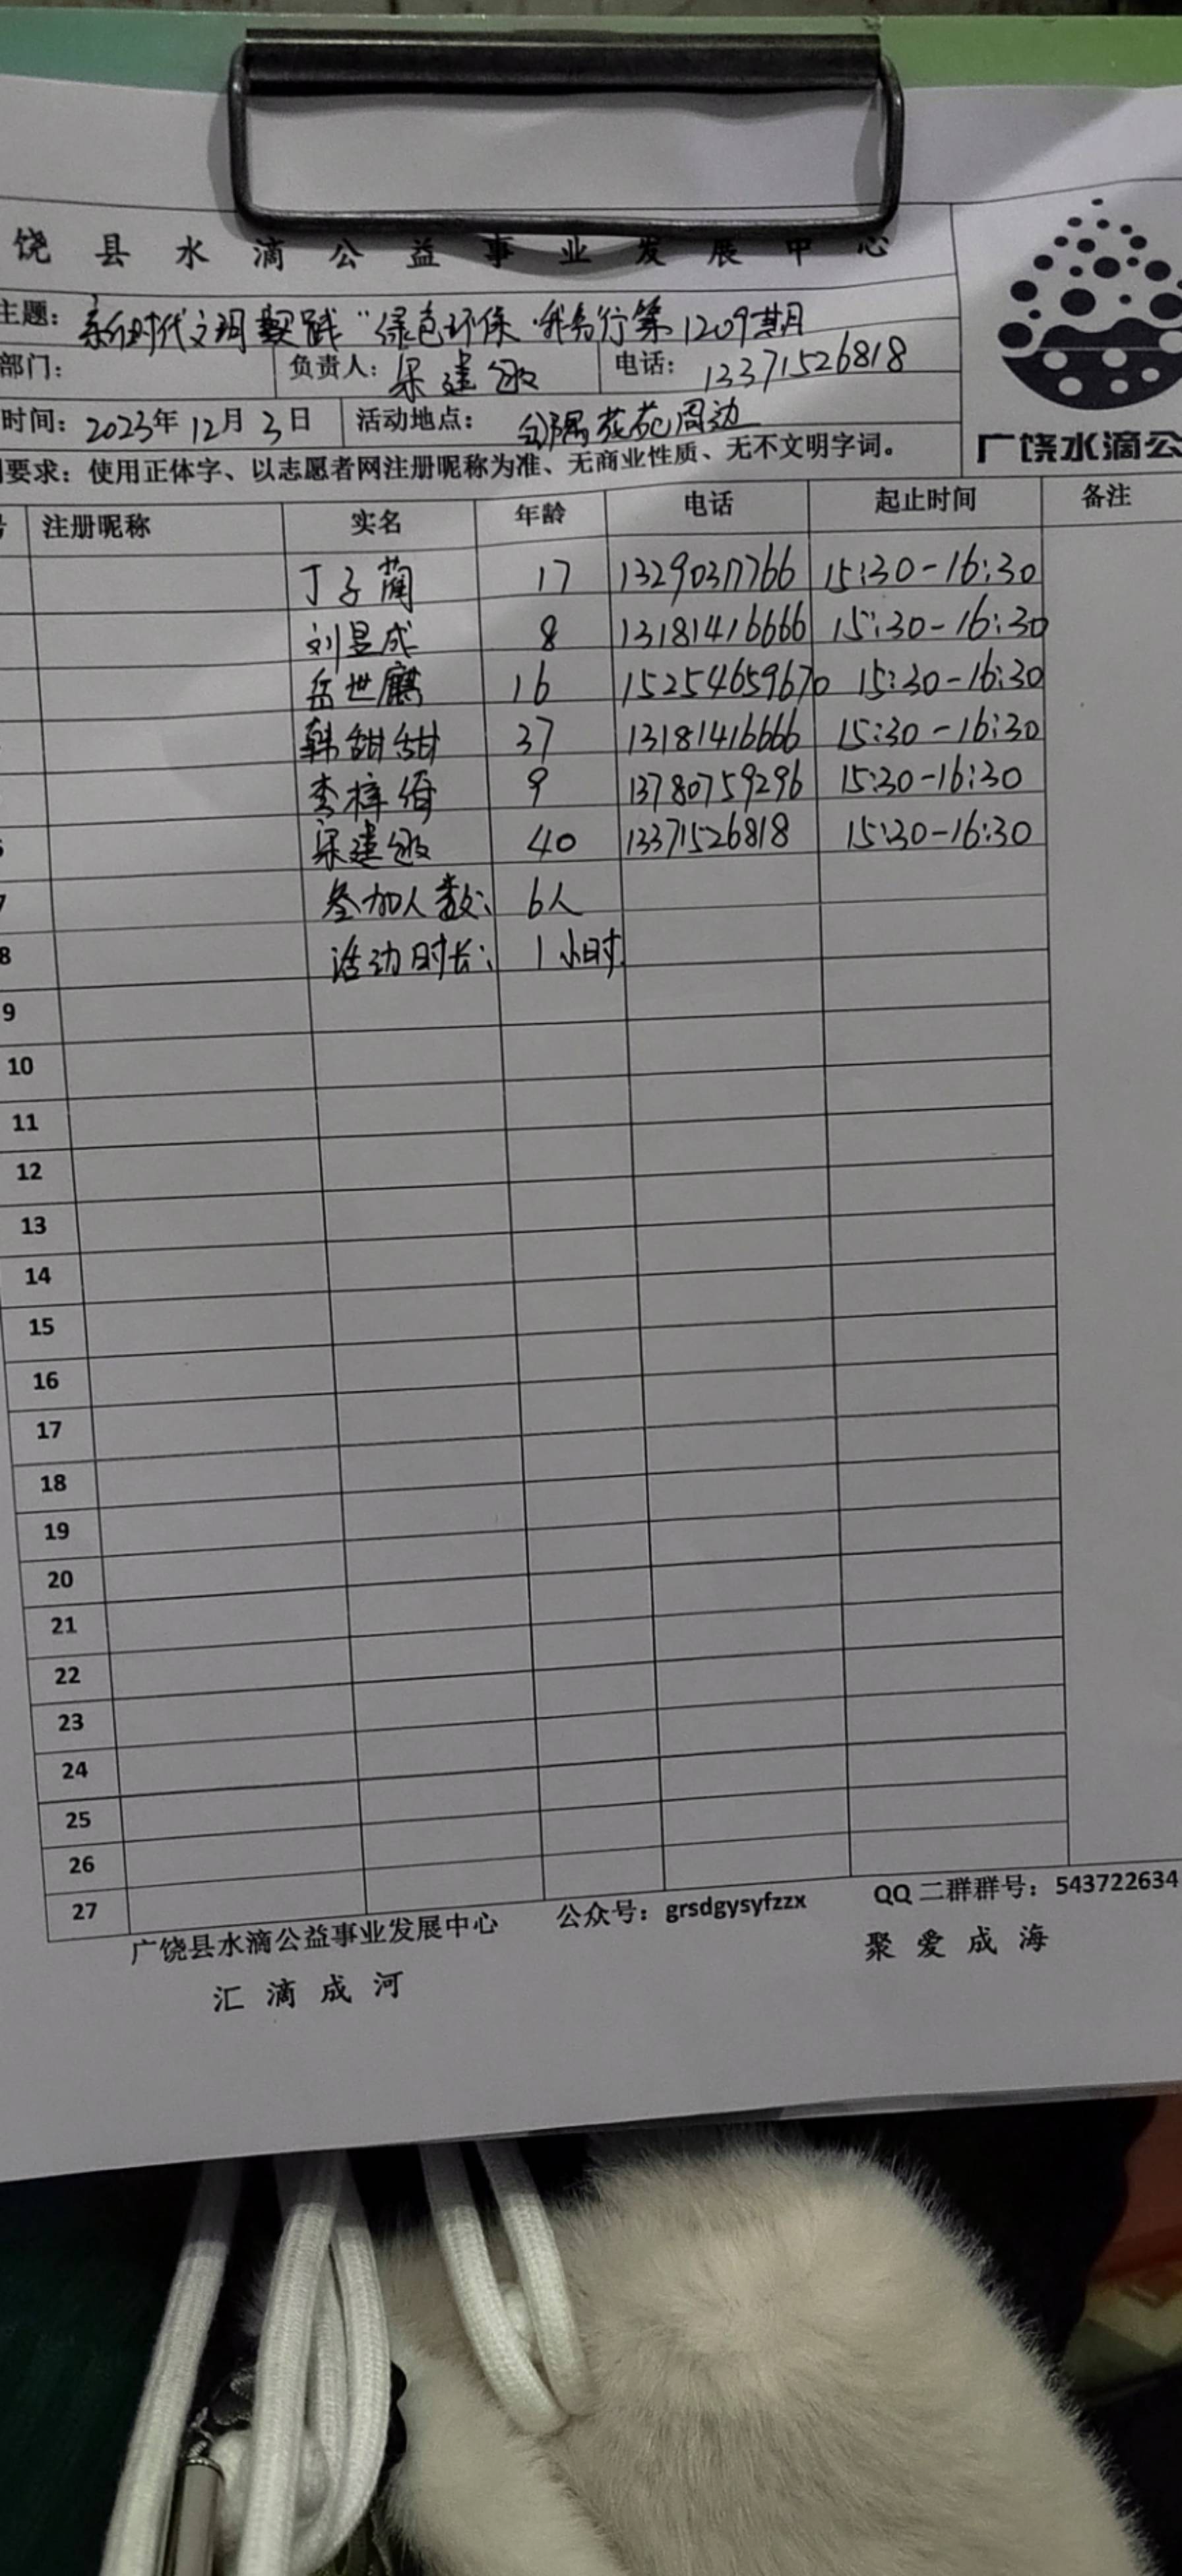 饶县水滴公益事业发展中心
主题: 新时代文明实践"绿色环保·我先行第1209期
部门: 负责人: 梁建敏 电话: 13371526818
时间: 2023年12月3日 活动地点: 花苑周边
要求: 使用正体字、以志愿者网注册昵称为准、无商业性质、无不文明字词。
广饶水滴公
号 注册昵称 实名 年龄 电话 起止时间 备注
丁子蘭 17 15:30-16:30
刘昱成 8 13181416666 15:30-16:30
岳世麒 16 15254659670 15:30-16:30
韩甜甜 37 13181416666 15:30-16:30
李梓 9 13780759296 15:30-16:30
6 梁建敏 40 13371526818 15:30-16:30
7 参加人数: 6人
8 活动时长: 1小时.
9
10
11
12
13
14
15
16
17
18
19
20
21
22
23
24
25
26
27
广饶县水滴公益事业发展中心 公众号: grsdgysyfzzx QQ二群群号: 543722634
汇滴成河 聚爱成海